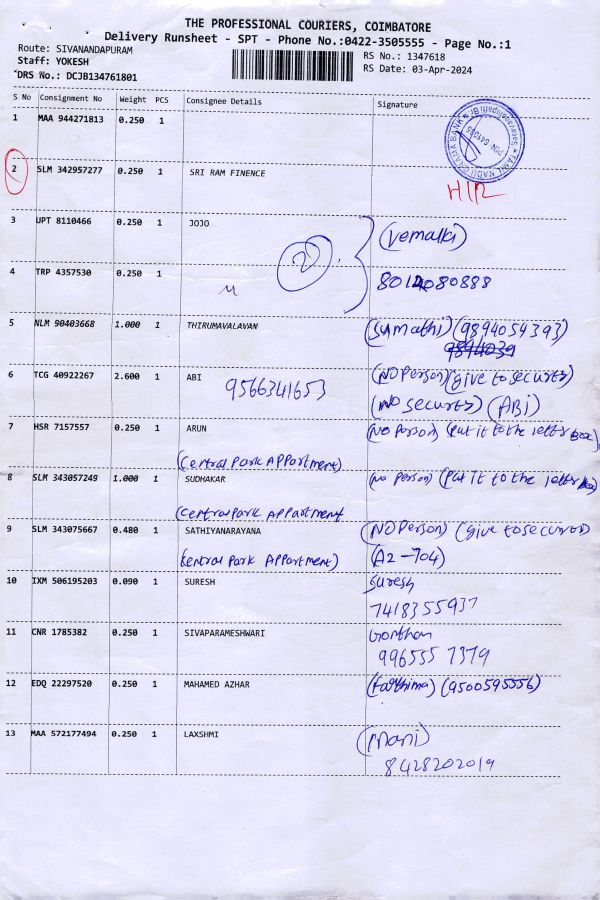 THE PROFESSIONAL COURIERS, COIMBATORE
Delivery Runsheet - SPT - Phone No.:0422-3505555 - Page No.:1
Route: SIVANANDAPURAM
Staff: YOKESH
DRS No.: DCJB134761801
RS No.: 1347618
RS Date: 03-Apr-2024
S No Consignment No Weight PCS Consignee Details Signature
1 MAA 944271813 0.250 1
TAMIL NADU GRAMA BANK
PIN - 641035
2 SLM 342957277 0.250 1 SRI RAM FINENCE
H/R
3 UPT 8110466 0.250 1 JOJO (Vemalki)
2
4 TRP 4357530 0.250 1 8012080888
5 NLM 90403668 1.000 1 THIRUMAVALAVAN (Sumathi) (9894054393)
9894039
6 TCG 40922267 2.600 1 ABI 9566341653 (NO Person) (give to security)
(NO security) (ABi)
7 HSR 7157557 0.250 1 ARUN (NO Person) (Put it to the letter box)
(Central Park APPartment)
8 SLM 343057249 1.000 1 SUDHAKAR (no person) (Put it to the letter box)
(Central Park APPartment
9 SLM 343075667 0.480 1 SATHIYANARAYANA (NO Person) (give to security)
(Central Park APPartment) (A2-704)
10 IXM 506195203 0.090 1 SURESH Suresh
7418355937
11 CNR 1785382 0.250 1 SIVAPARAMESHWARI
996555 7379
12 EDQ 22297520 0.250 1 MAHAMED AZHAR (fathima) (9500595556)
13 MAA 572177494 0.250 1 LAXSHMI (Mani)
8428202019